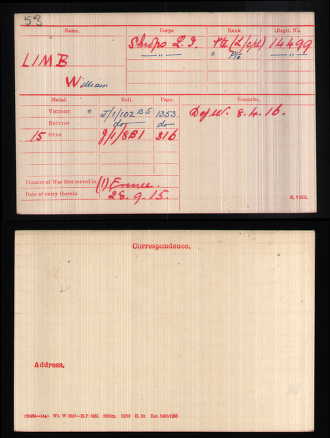 53
Corps. Rank. Regtl. No.
LIMB Shrops L.I. Pte (L/Cpl) 14499
William " " Pte "
Medal. Roll. Page. Remarks.
Victory J/1/102 B5 1353 D of W. 8.4.16.
British do do
15 Star J/1/8B1 316
Theatre of War first served in (1) France
Date of entry therein 28.9.15.
K. 1380.
Correspondence.
Address.